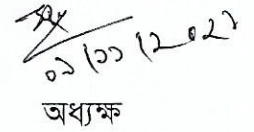 ০১/১১/২০২১
অধ্যক্ষ